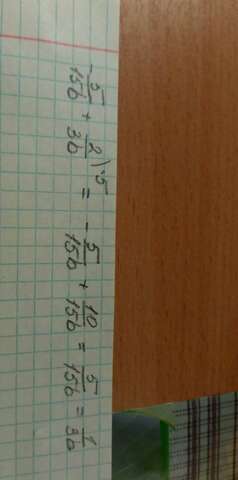 -5/15b + 2/3b)·5 = -5/15b + 10/15b = 5/15b = 1/3b